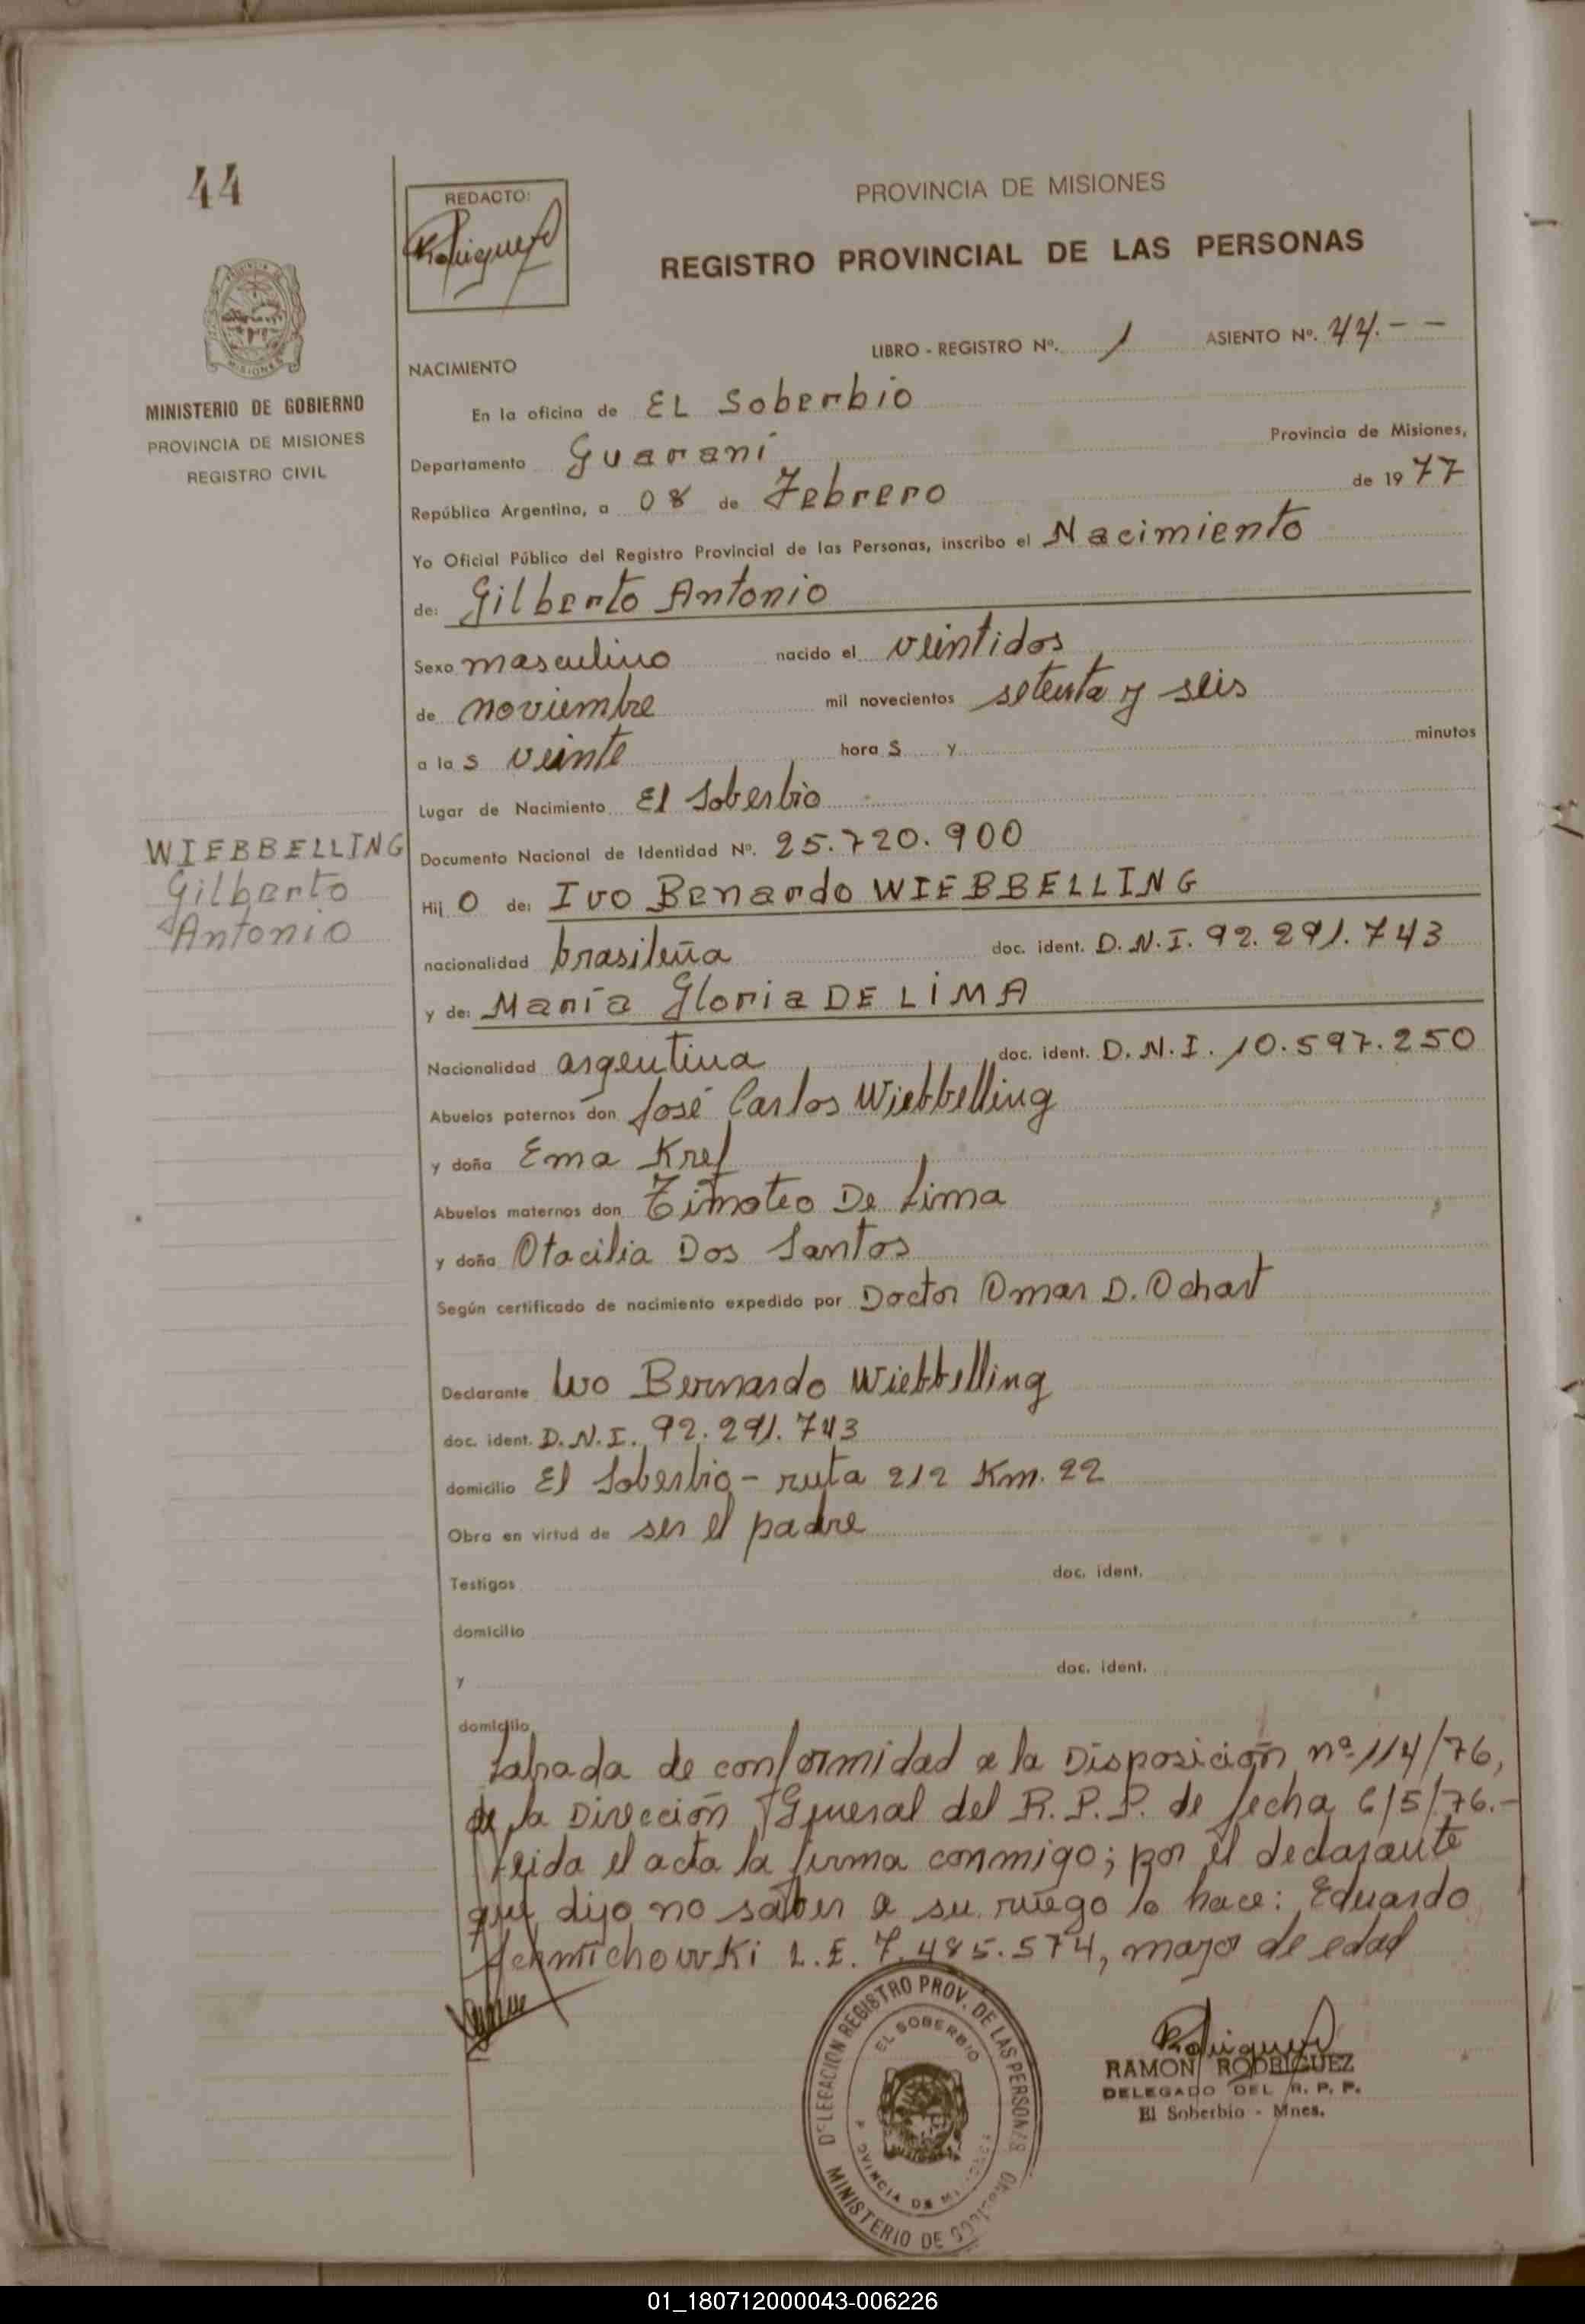 44
REDACTO:
Rodriguez
PROVINCIA DE MISIONES
REGISTRO PROVINCIAL DE LAS PERSONAS
PROVINCIA DE MISIONES
MINISTERIO DE GOBIERNO
PROVINCIA DE MISIONES
REGISTRO CIVIL
LIBRO - REGISTRO Nº. 1 ASIENTO Nº. 44.- -
NACIMIENTO
En la oficina de EL Soberbio
Departamento Guaraní Provincia de Misiones,
República Argentina, a 08 de Febrero de 1977
Yo Oficial Público del Registro Provincial de las Personas, inscribo el Nacimiento
de: Gilberto Antonio
Sexo masculino nacido el veintidos
de noviembre mil novecientos setenta y seis
a las veinte horas y minutos
Lugar de Nacimiento El Soberbio
Documento Nacional de Identidad Nº. 25.720.900
WIEBBELLING
Gilberto
Antonio
Hijo de: Ivo Benardo WIEBBELLING
nacionalidad brasileña doc. ident. D.N.I. 92.291.743
y de: María Gloria DE LIMA
Nacionalidad argentina doc. ident. D.N.I. 10.597.250
Abuelos paternos don José Carlos Wiebbelling
y doña Ema Kref
Abuelos maternos don Timoteo De Lima
y doña Otacilia Dos Santos
Según certificado de nacimiento expedido por Doctor Omar D. Ochart
Declarante Ivo Bernardo Wiebbelling
doc. ident. D.N.I. 92.291.743
domicilio El Soberbio - ruta 212 Km. 22
Obra en virtud de ser el padre
Testigos doc. ident.
domicilio
y doc. ident.
domicilio
Labrada de conformidad a la Disposición nº 114/76,
de la Dirección General del R.P.P. de fecha 6/5/76.-
Leida el acta la firma conmigo; por el declarante
que dijo no saber a su ruego lo hace: Eduardo
L.E. 7.485.574, mayor de edad
DELEGACION REGISTRO PROV. DE LAS PERSONAS
EL SOBERBIO
PROVINCIA DE MISIONES
MINISTERIO DE GOBIERNO
Rodriguez
RAMON RODRIGUEZ
DELEGADO DEL R. P. P.
El Soberbio - Mnes.
01_180712000043-006226